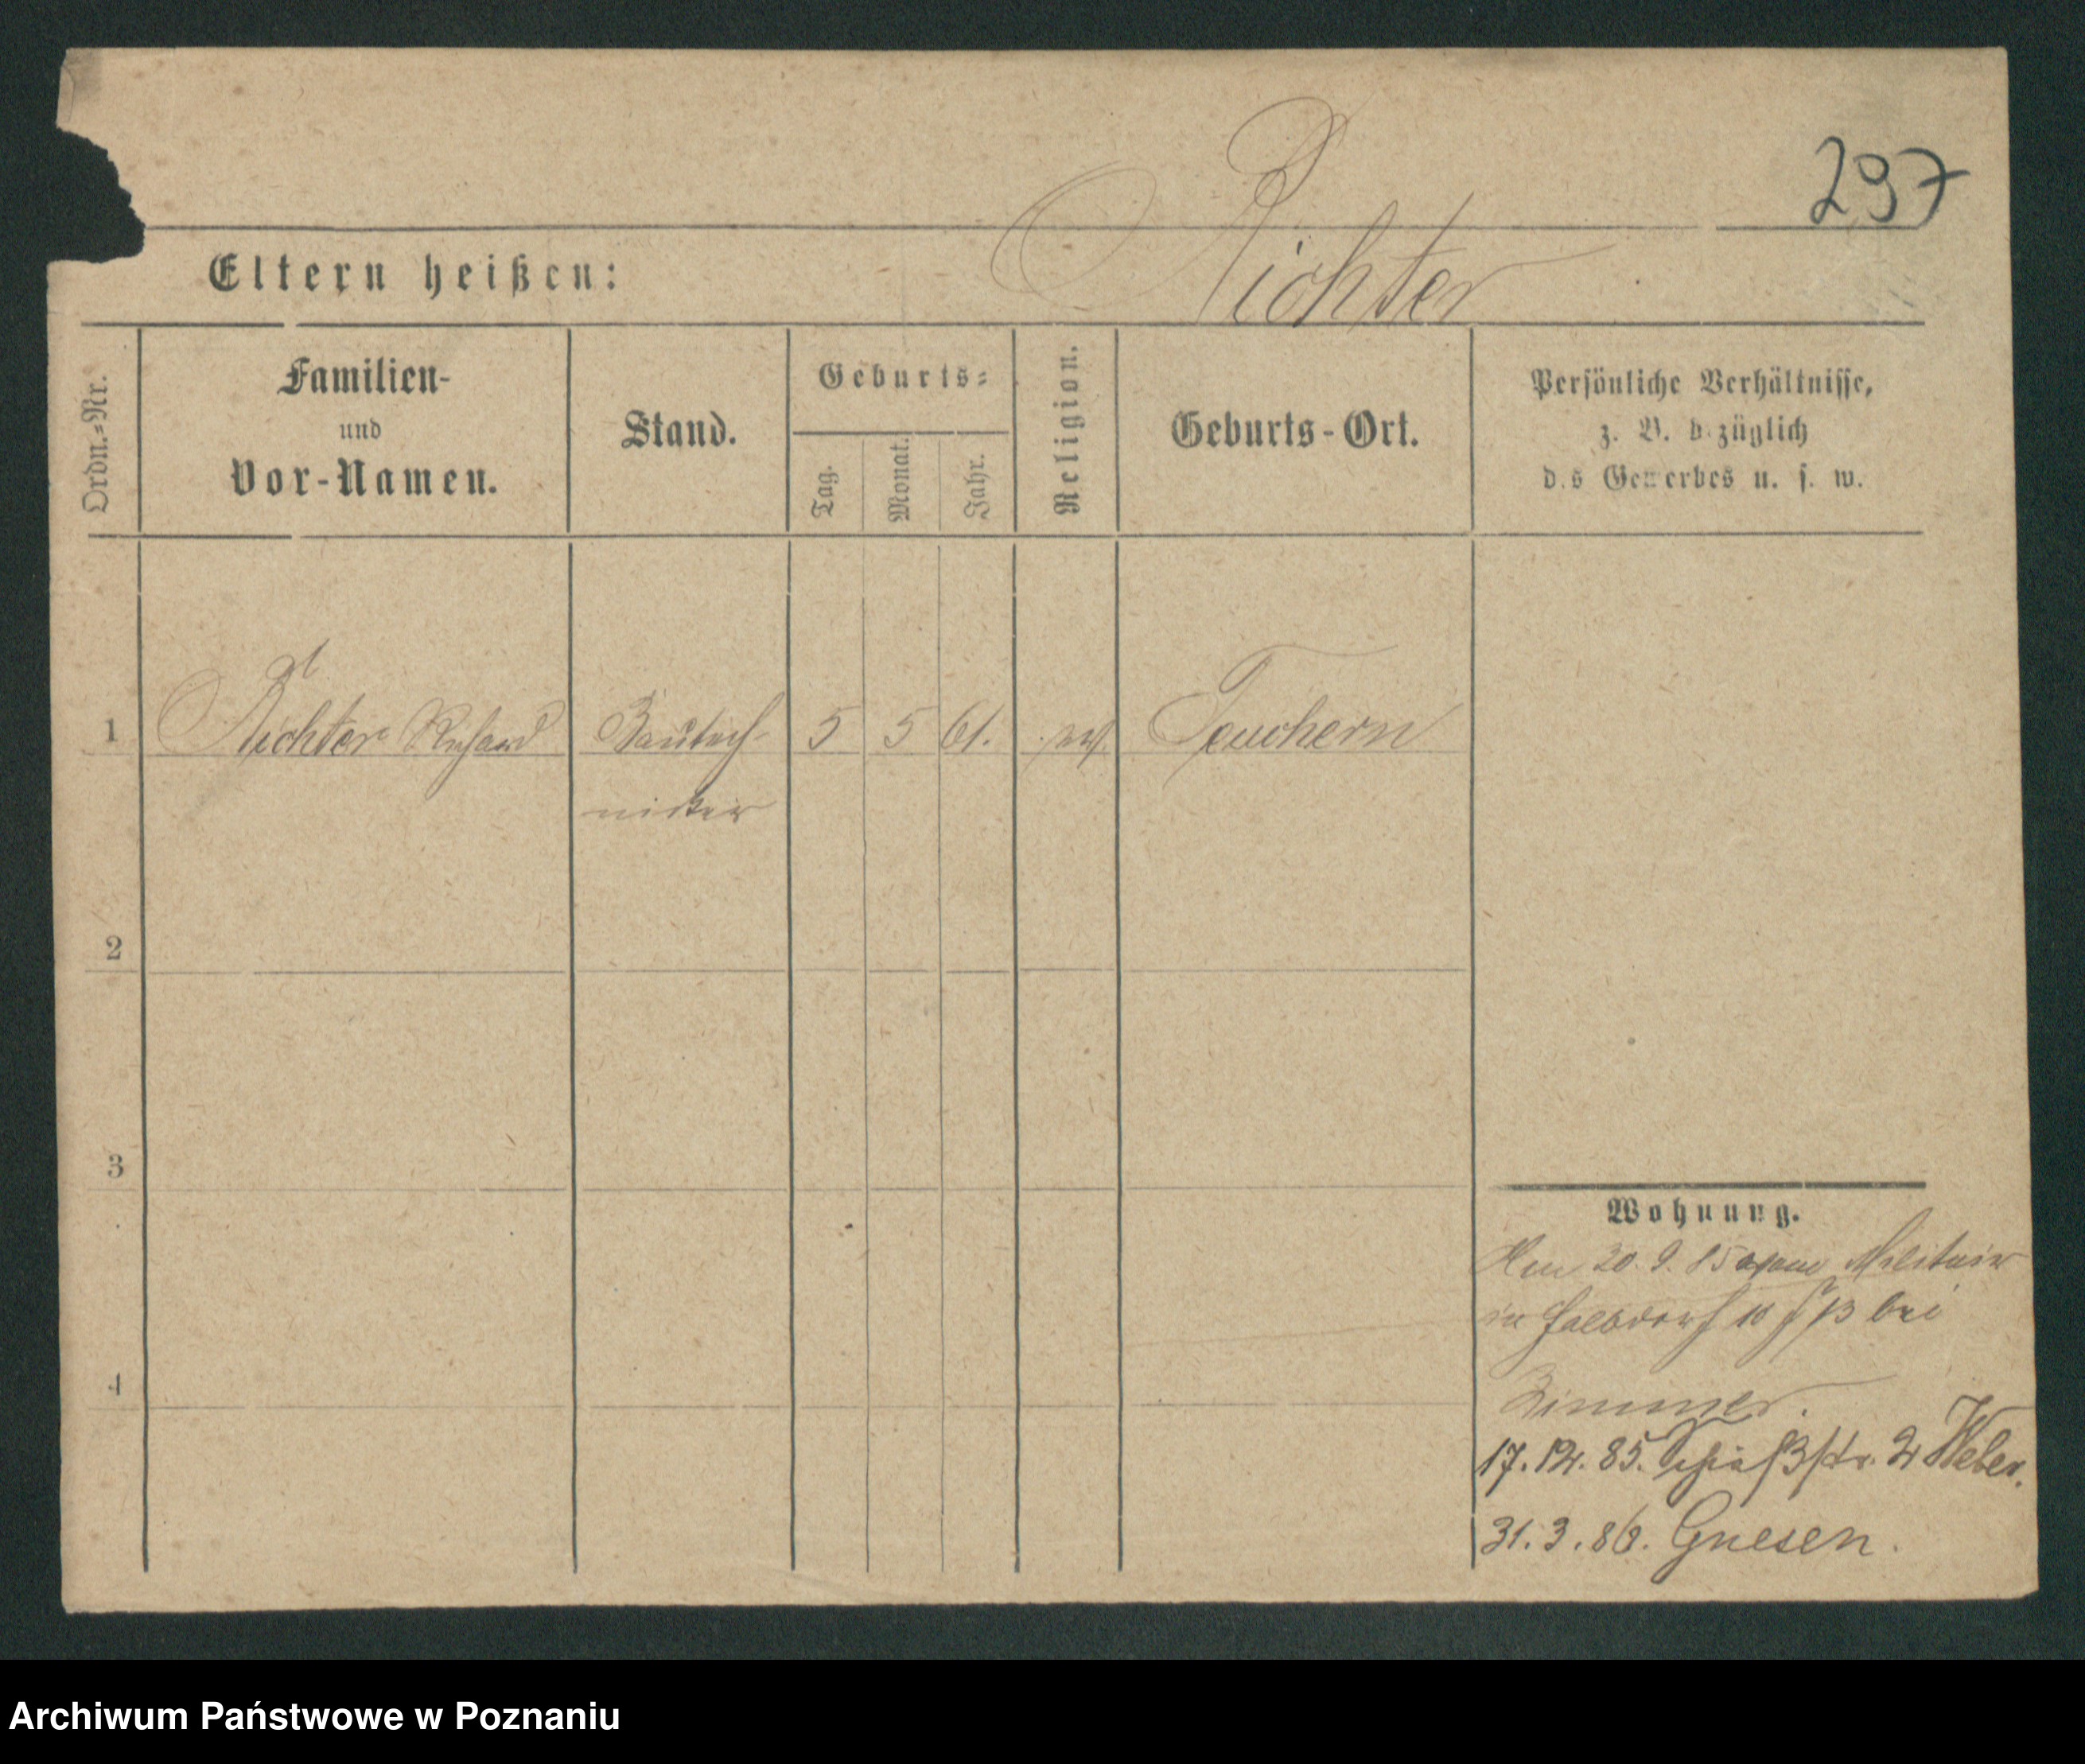 297
Richter
Eltern heißen:
Ordn.=Nr.
Familien-
und
Vor-Namen.
Stand.
Geburts=
Tag.
Monat.
Jahr.
Religion.
Geburts-Ort.
Persönliche Verhältnisse,
z. B. bezüglich
des Gewerbes u. s. w.
1 Richter Richard Bautech- 5 5 61. ev. Teuchern
niker
2
3
4
Wohnung.
20. 9. 85 Militair
in bei
Zimmer.
17. 12. 85. 2 Weber.
31. 3. 86. Gnesen.
Archiwum Państwowe w Poznaniu